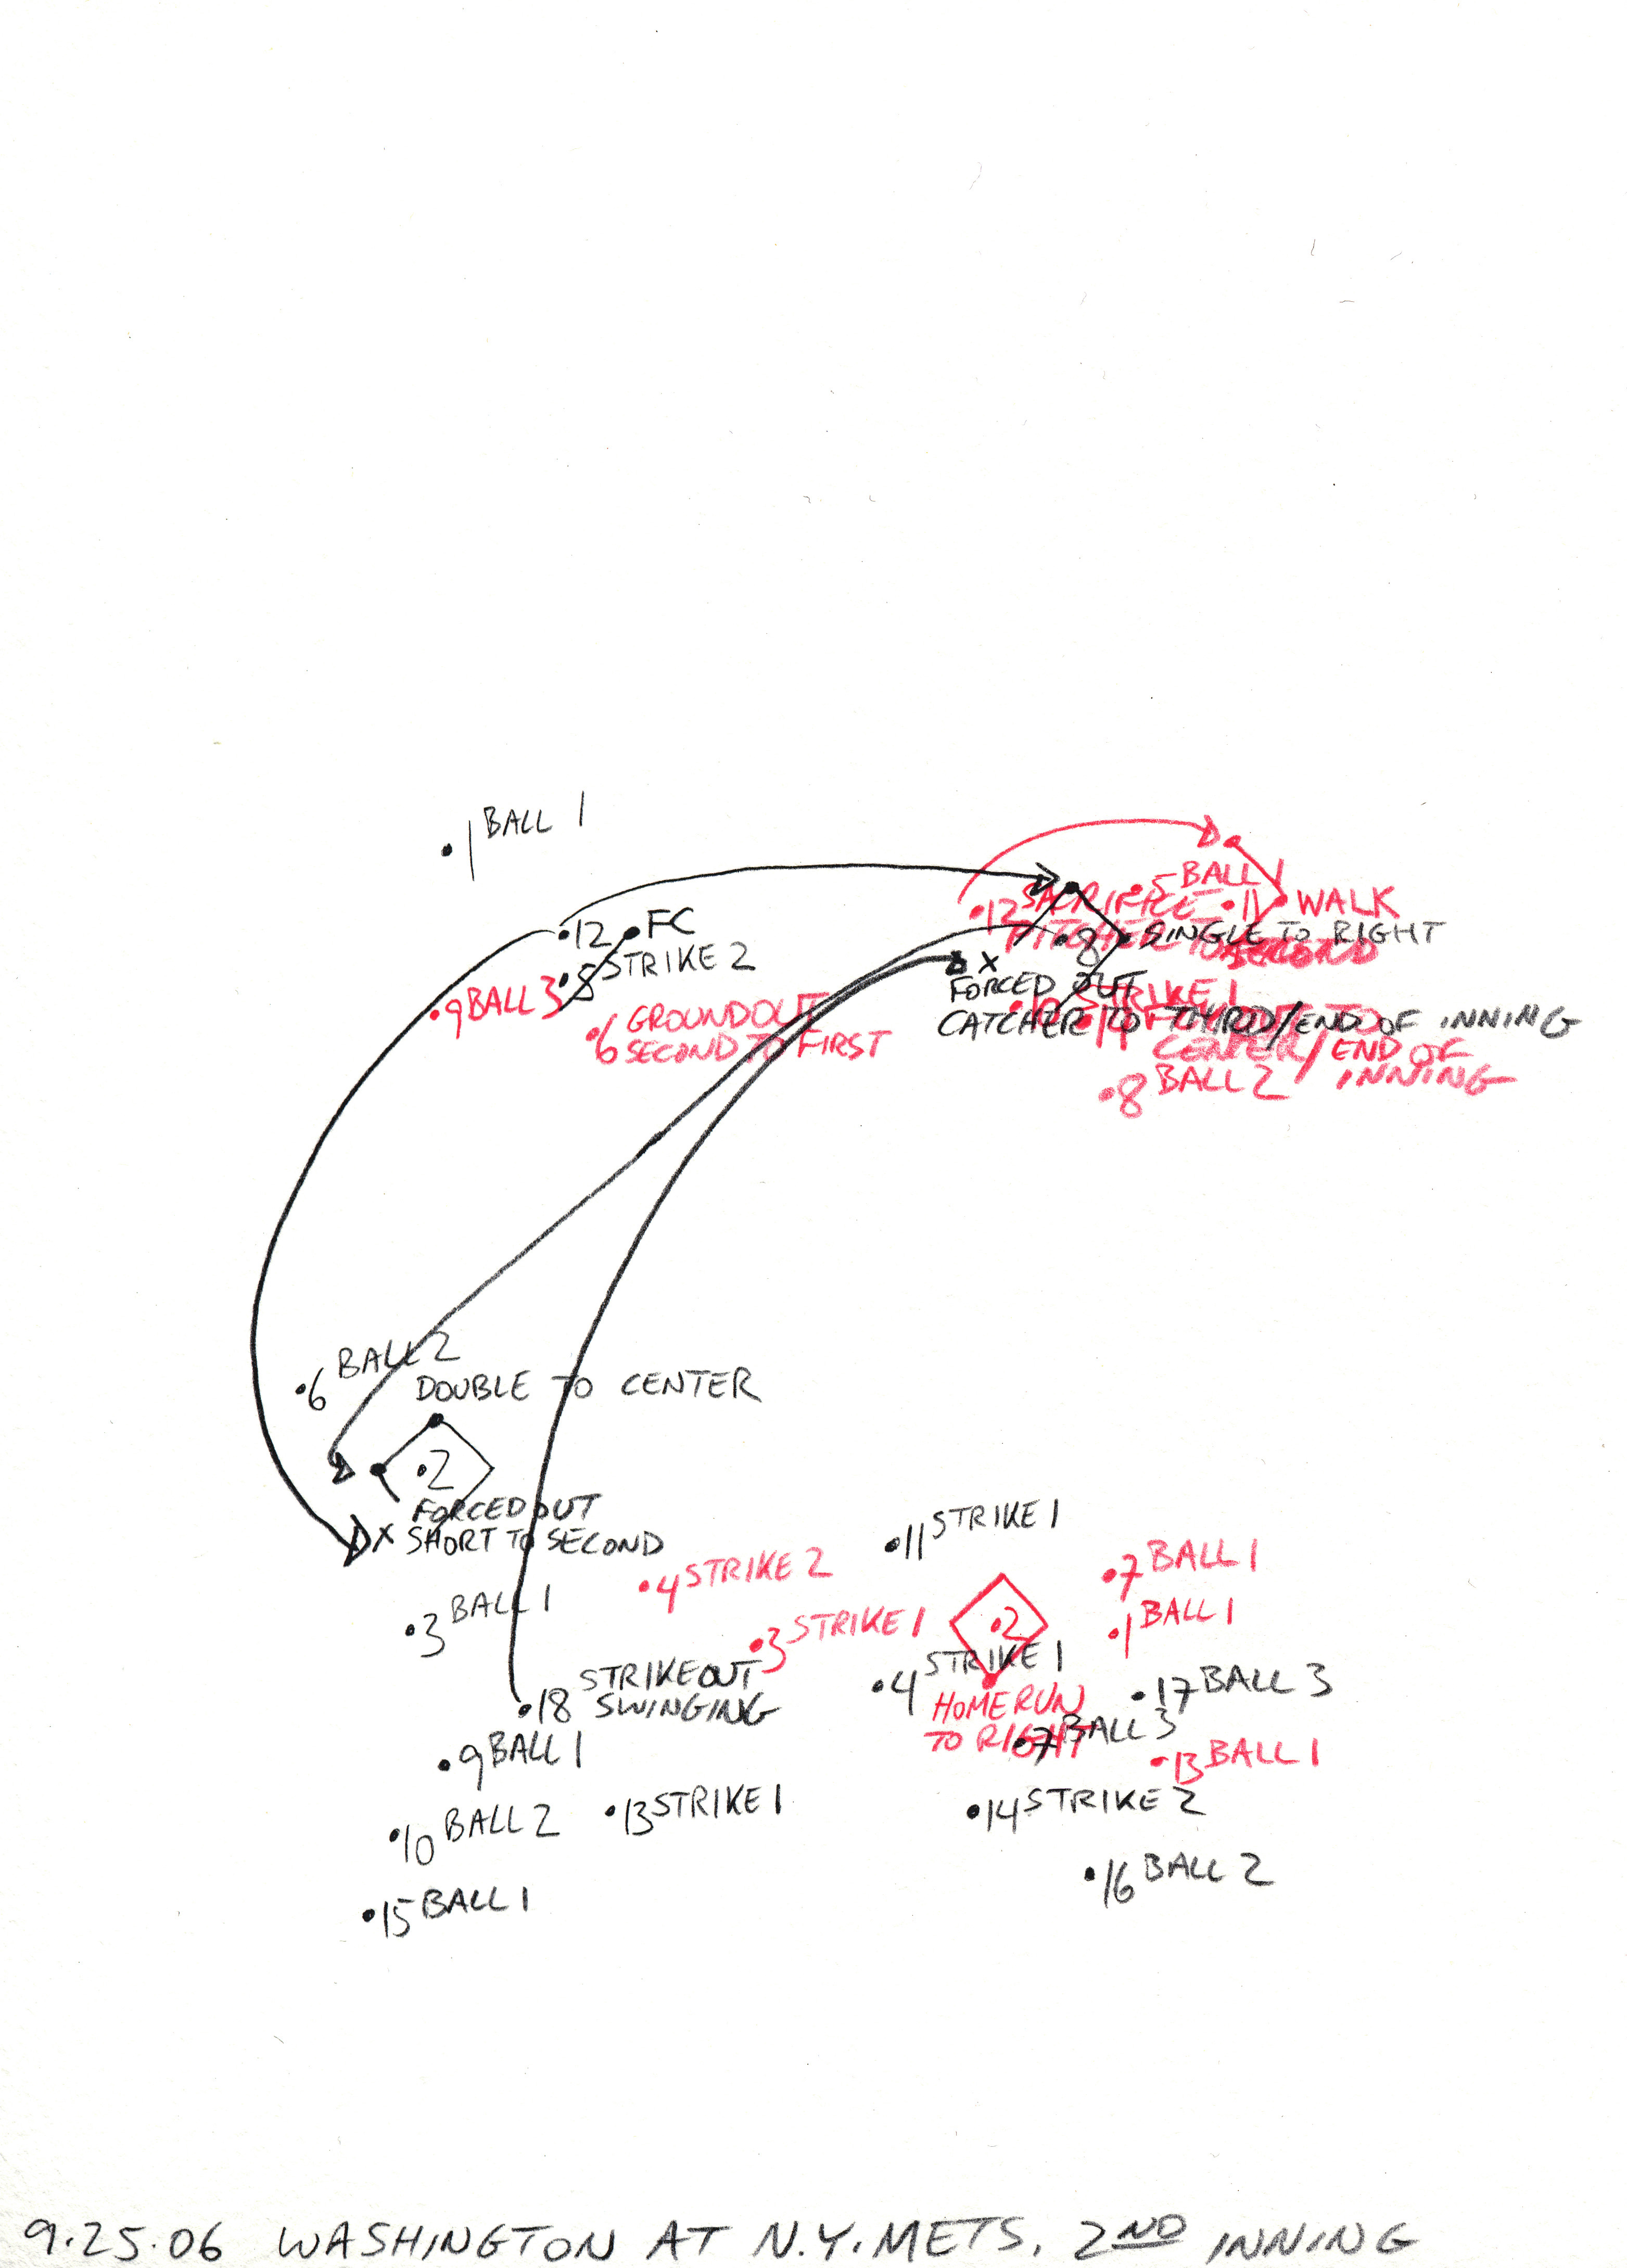 .1 BALL 1
.12 FC
.5 STRIKE 2
.9 BALL 3
.6 GROUNDOUT
SECOND TO FIRST
.5 BALL 1
.12 SACRIFICE
PITCHER TO SECOND
.11 WALK
.8 SINGLE TO RIGHT
X
FORCED OUT
CATCHER TO THIRD/END OF INNING
.10 STRIKE 1
CENTER/END OF
INNING
.8 BALL 2
.6 BALL 2
DOUBLE TO CENTER
.2
FORCED OUT
X SHORT TO SECOND
.3 BALL 1
.4 STRIKE 2
.3 STRIKE 1
.11 STRIKE 1
.2
.7 BALL 1
.1 BALL 1
.4 STRIKE 1
HOMERUN
TO RIGHT
.7 BALL 3
.17 BALL 3
.13 BALL 1
.18 STRIKEOUT
SWINGING
.9 BALL 1
.10 BALL 2
.13 STRIKE 1
.14 STRIKE 2
.15 BALL 1
.16 BALL 2
9.25.06 WASHINGTON AT N.Y. METS, 2ND INNING